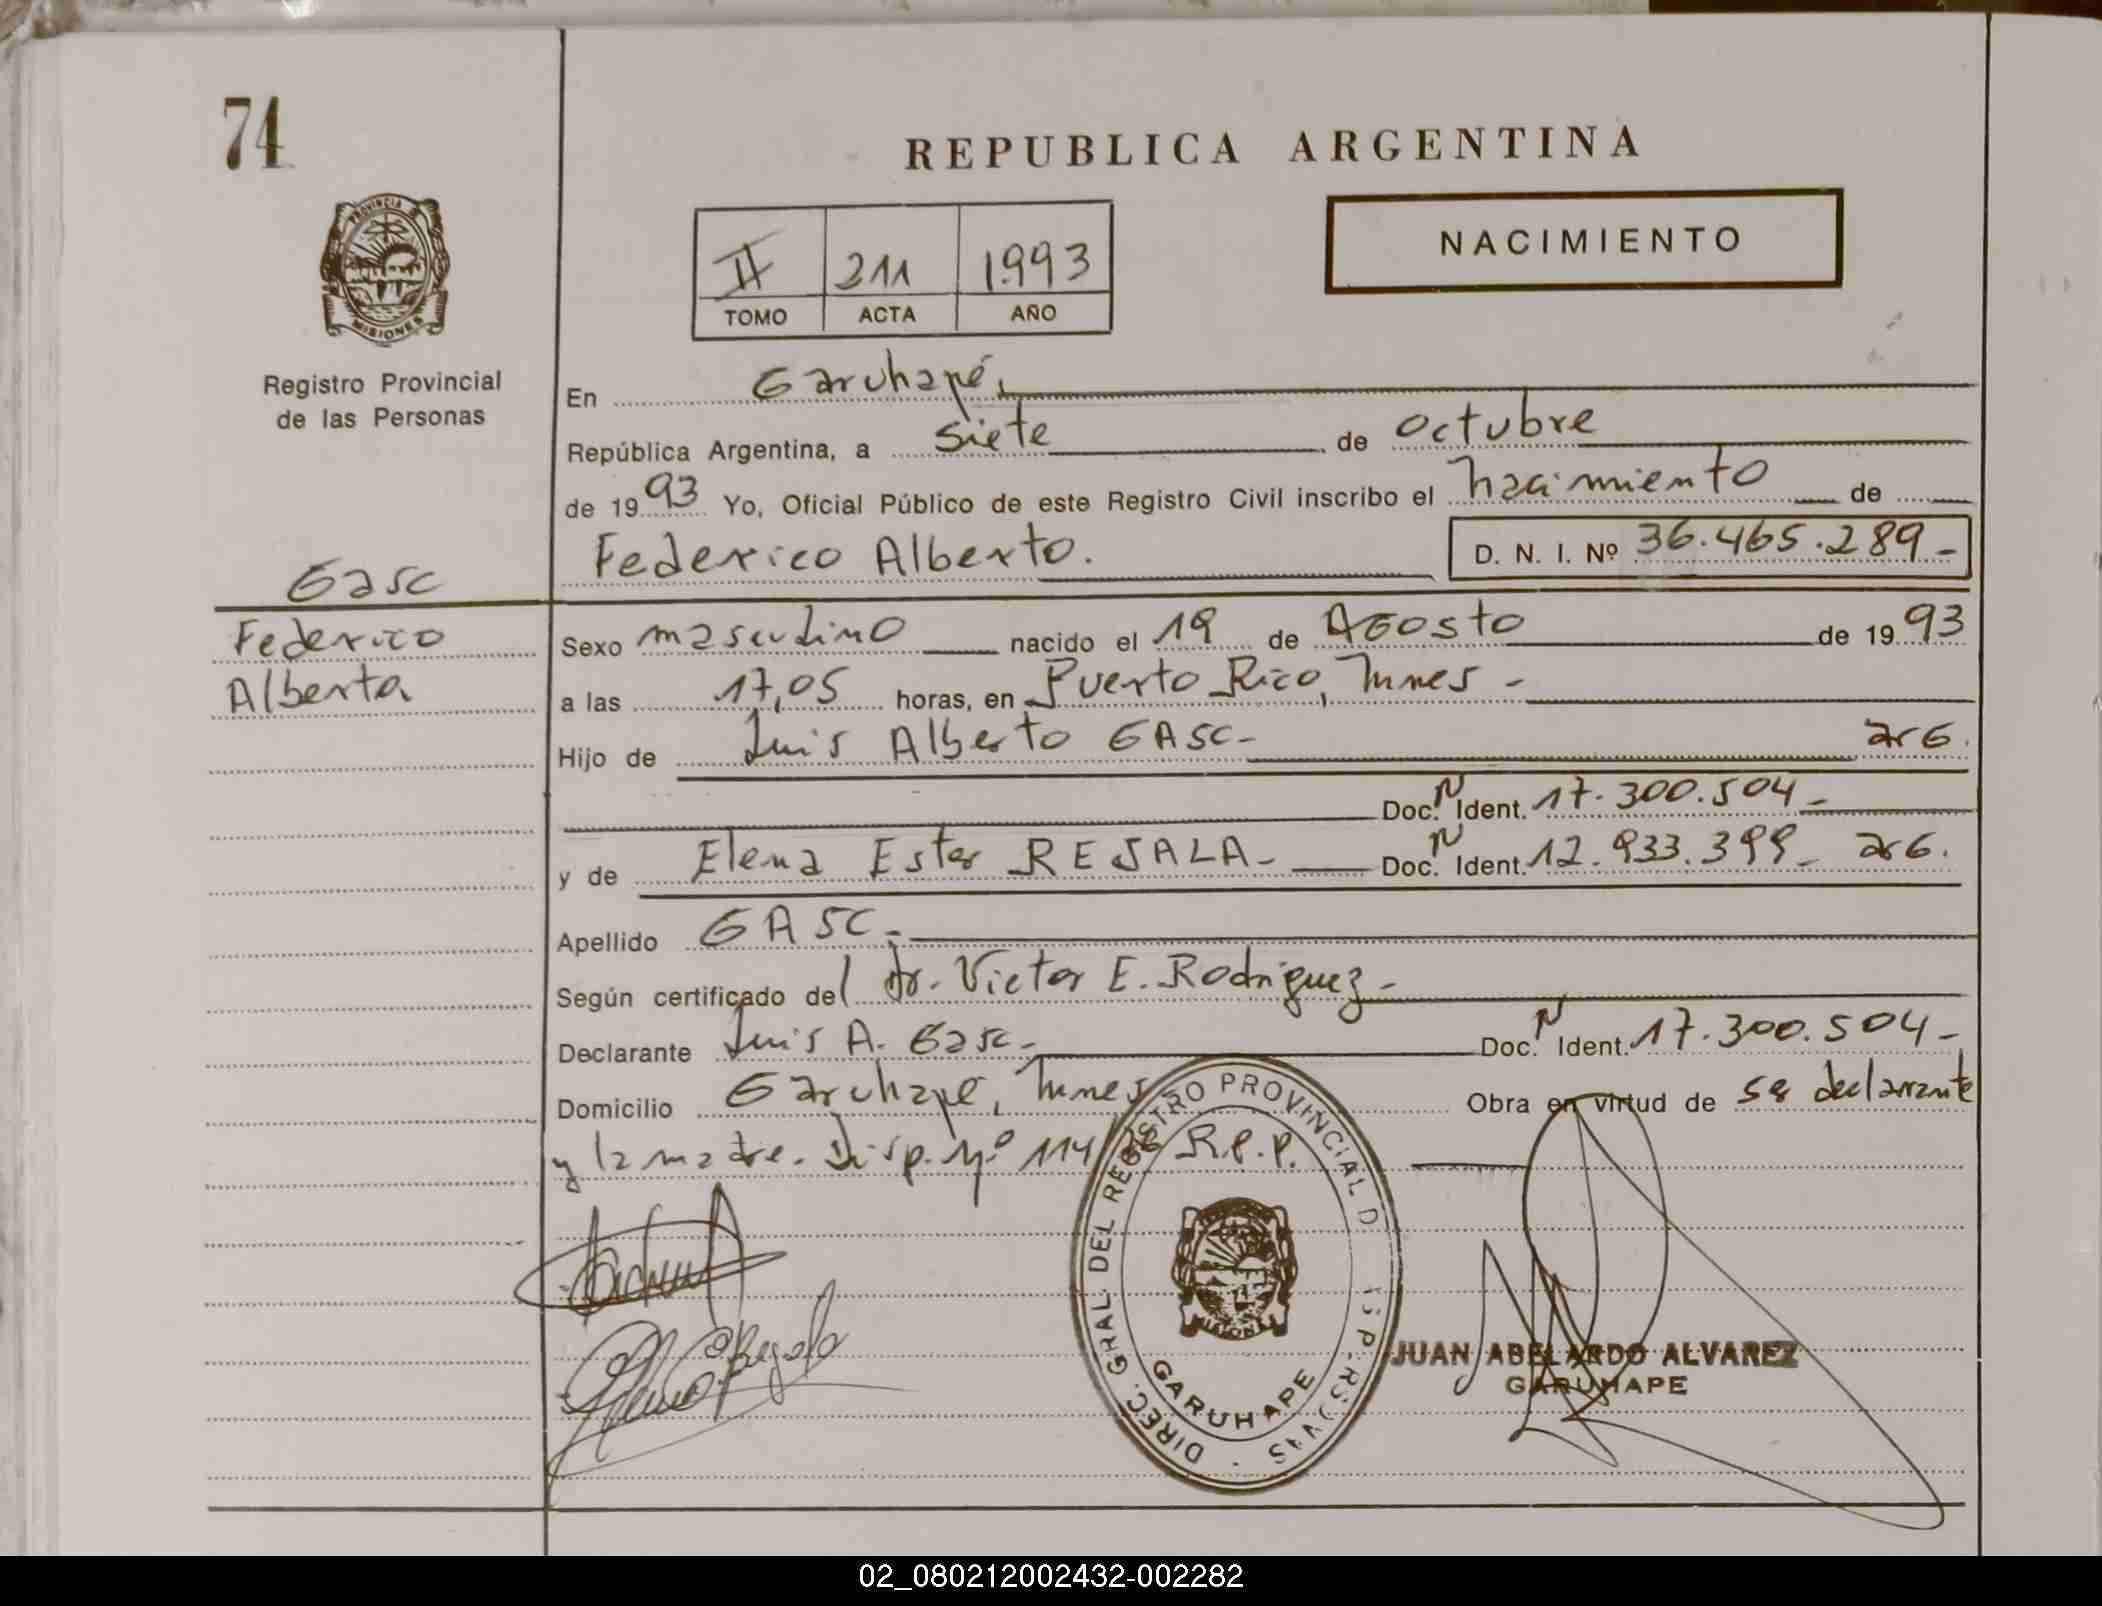 74
REPUBLICA ARGENTINA
NACIMIENTO
PROVINCIA D
MISIONES
Registro Provincial
de las Personas
II 211 1.993
TOMO ACTA AÑO
En Garuhapé,
República Argentina, a siete de octubre
de 1993 Yo, Oficial Público de este Registro Civil inscribo el nacimiento de
Federico Alberto. D. N. I. Nº 36.465.289-
Gasc
Federico
Alberto
Sexo masculino nacido el 19 de Agosto de 1993
a las 17,05 horas, en Puerto Rico,
Hijo de Luis Alberto GASC- arG.
Doc. N Ident. 17.300.504-
y de Elena Ester REJALA- Doc. N Ident. 12.933.399- arG.
Apellido GASC-
Según certificado del Dr. Victor E. Rodriguez-
Declarante Luis A. Gasc- Doc. N Ident. 17.300.504-
Domicilio Garuhapé, Obra en virtud de ser declarante
y la madre. Disp. Nº 114/ R.P.P.
DIREC. GRAL. DEL REGISTRO PROVINCIAL D
GARUHAPE
JUAN ABELARDO ALVAREZ
GARUHAPE
02_080212002432-002282